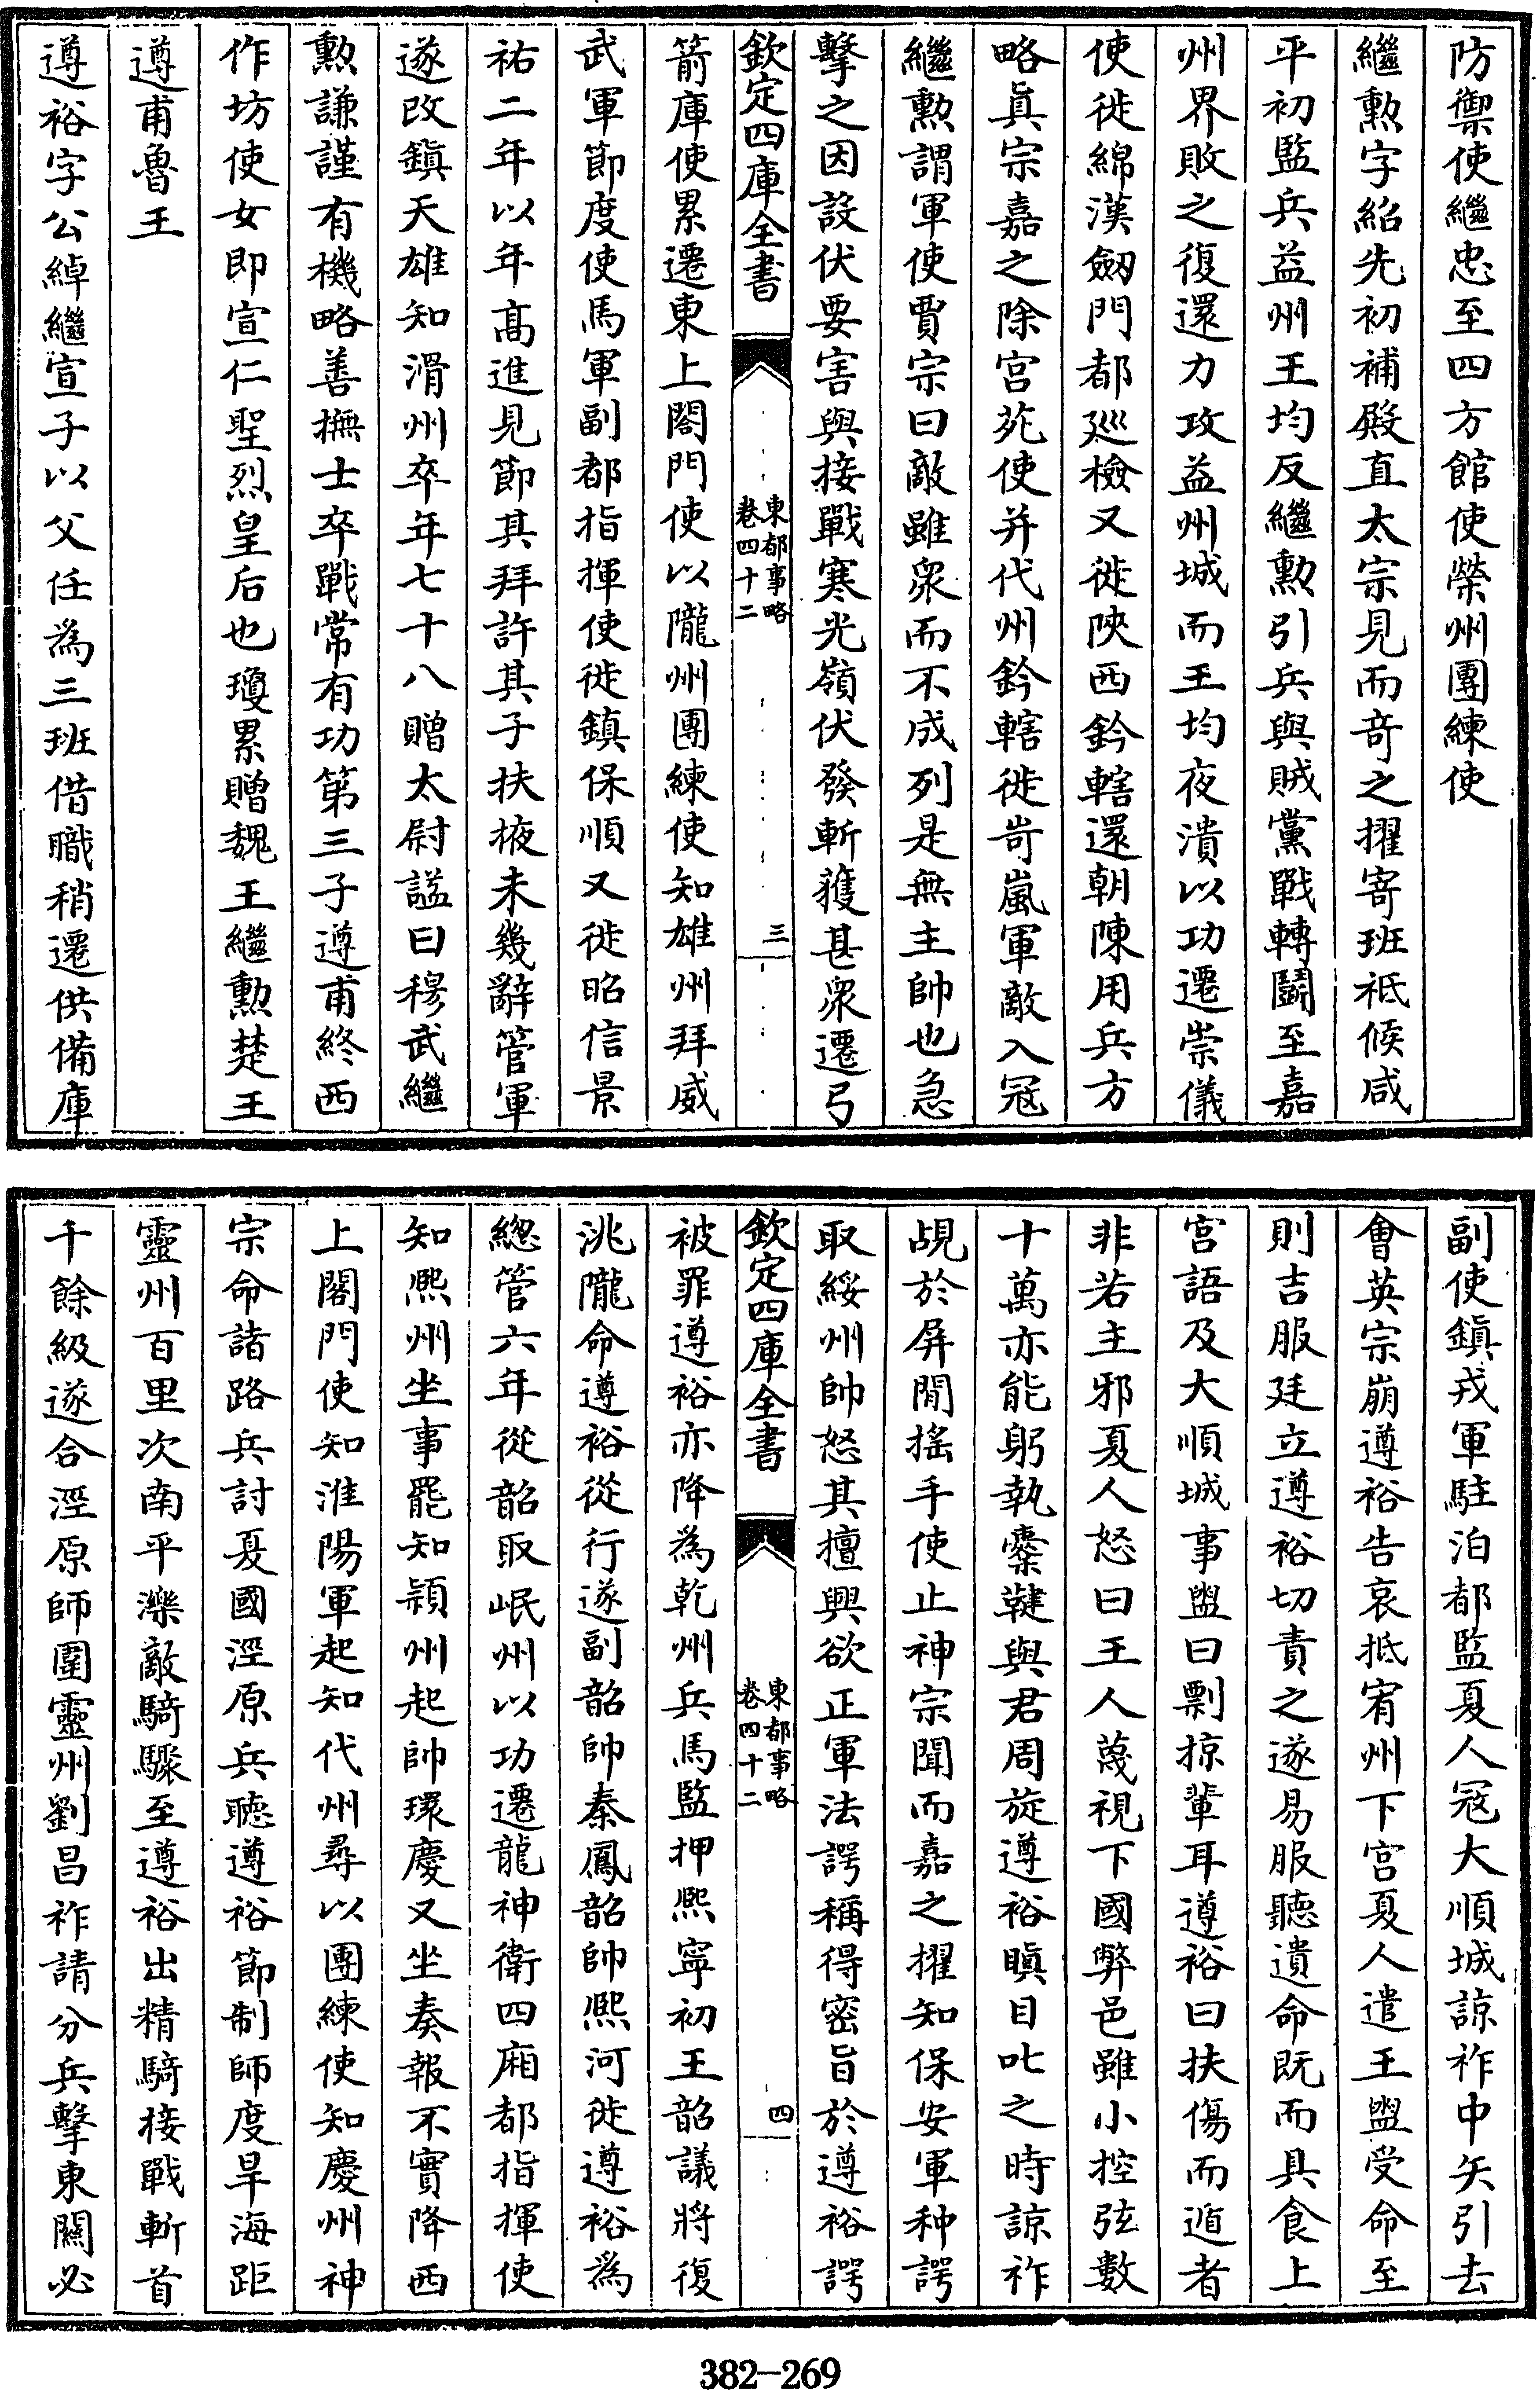 防禦使繼忠至四方館使榮州團練使
繼勲字紹先初補殿直太宗見而竒之擢寄班祗候咸
平初監兵益州王均反繼勲引兵與賊黨戰轉鬭至嘉
州界敗之復還力攻益州城而王均夜潰以功遷崇儀
使徙綿漢劒門都廵檢又徙陜西鈐轄還朝陳用兵方
略眞宗嘉之除宫苑使并代州鈐轄徙岢嵐軍敵入冦
繼勲謂軍使賈宗曰敵雖衆而不成列是無主帥也急
擊之因設伏要害與接戰寒光嶺伏發斬獲甚衆遷弓
欽定四庫全書
東都事略
卷四十二
三
箭庫使累遷東上閤門使以隴州團練使知雄州拜威
武軍節度使馬軍副都指揮使徙鎮保順又徙昭信景
祐二年以年髙進見節其拜許其子扶掖未幾辭管軍
遂改鎮天雄知滑州卒年七十八贈太尉諡曰穆武繼
勲謙謹有機略善撫士卒戰常有功第三子遵甫終西
作坊使女即宣仁聖烈皇后也瓊累贈魏王繼勲楚王
遵甫魯王
遵裕字公綽繼宣子以父任為三班借職稍遷供備庫
副使鎮戎軍駐泊都監夏人冦大順城諒祚中矢引去
會英宗崩遵裕告哀抵宥州下宫夏人遣王盥受命至
則吉服廷立遵裕切責之遂易服聽遺命既而具食上
宫語及大順城事盥曰剽掠輩耳遵裕曰扶傷而遁者
非若主邪夏人怒曰王人蔑視下國弊邑雖小控弦數
十萬亦能躬執櫜鞬與君周旋遵裕瞋目叱之時諒祚
覘於屏閒搖手使止神宗聞而嘉之擢知保安軍种諤
取綏州帥怒其擅興欲正軍法諤稱得密旨於遵裕諤
欽定四庫全書
東都事略
卷四十二
四
被罪遵裕亦降為乾州兵馬監押熈寧初王韶議將復
洮隴命遵裕從行遂副韶帥秦鳳韶帥熈河徙遵裕為
總管六年從韶取岷州以功遷龍神衛四廂都指揮使
知熈州坐事罷知潁州起帥環慶又坐奏報不實降西
上閤門使知淮陽軍起知代州尋以團練使知慶州神
宗命諸路兵討夏國涇原兵聽遵裕節制師度旱海距
靈州百里次南平濼敵騎驟至遵裕出精騎接戰斬首
千餘級遂合涇原師圍靈州劉昌祚請分兵擊東關必
382-269